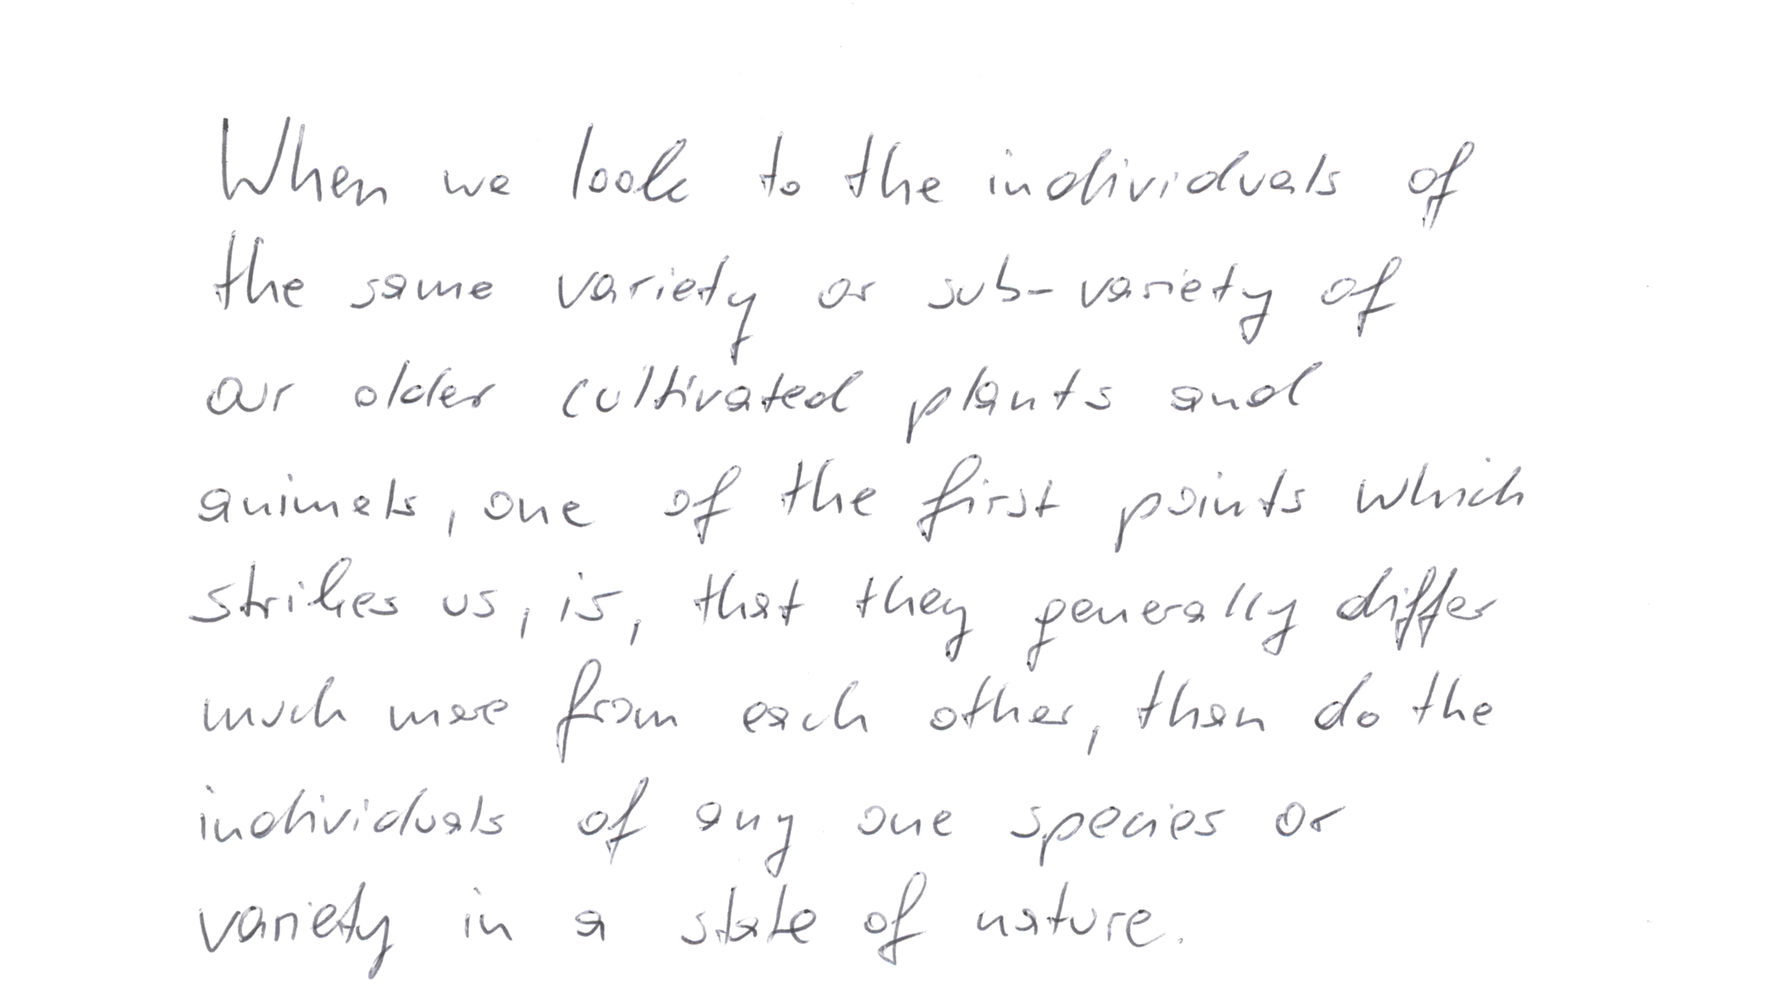 When we look to the individuals of
the same variety or sub-variety of
our older cultivated plants and
animals, one of the first points which
strikes us, is, that they generally differ
much more from each other, than do the
individuals of any one species or
variety in a state of nature.